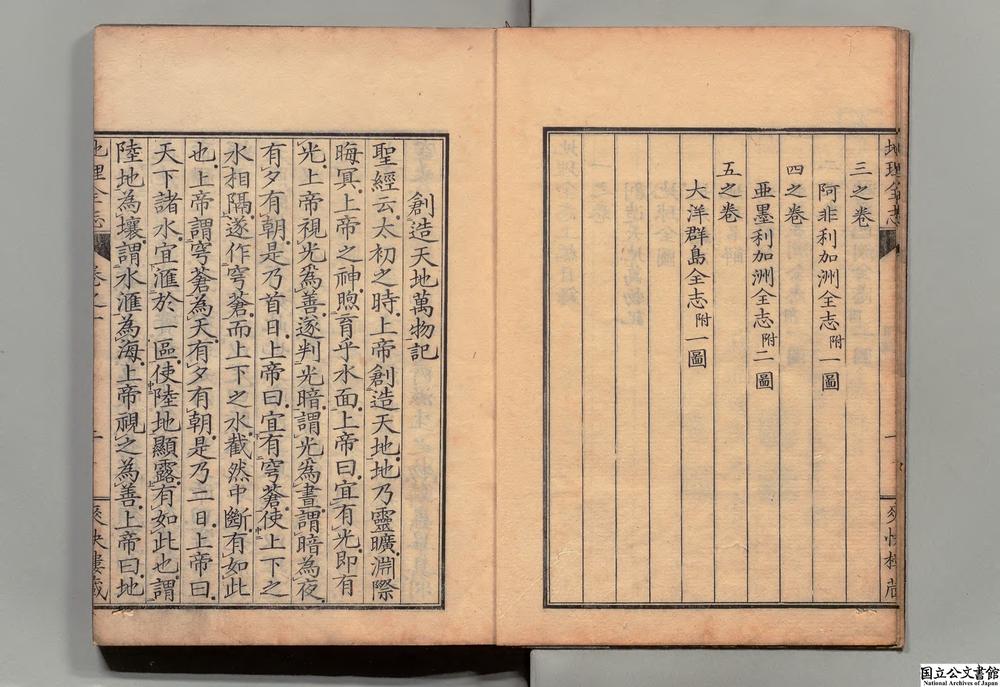 三之卷
阿非利加洲全志附一圖
四之卷
亜墨利加洲全志附二圖
五之卷
大洋群島全志附一圖
創造天地萬物記
聖經云太初之時上帝創造天地地乃靈曠淵際
晦冥上帝之神煦育乎水面上帝曰宜有光即有
光上帝視光爲善遂判光暗謂光爲晝謂暗為夜
有夕有朝是乃首日上帝曰宜有穹蒼使上下之
水相隔遂作穹蒼而上下之水截然中斷有如此
也上帝謂穹蒼為天有夕有朝是乃二日上帝曰
天下諸水宜滙於一區使陸地顯露有如此也謂
陸地為壤謂水滙為海上帝視之為善上帝曰地
地理全志
卷之一
爽快樓藏
国立公文書館
National Archives of Japan